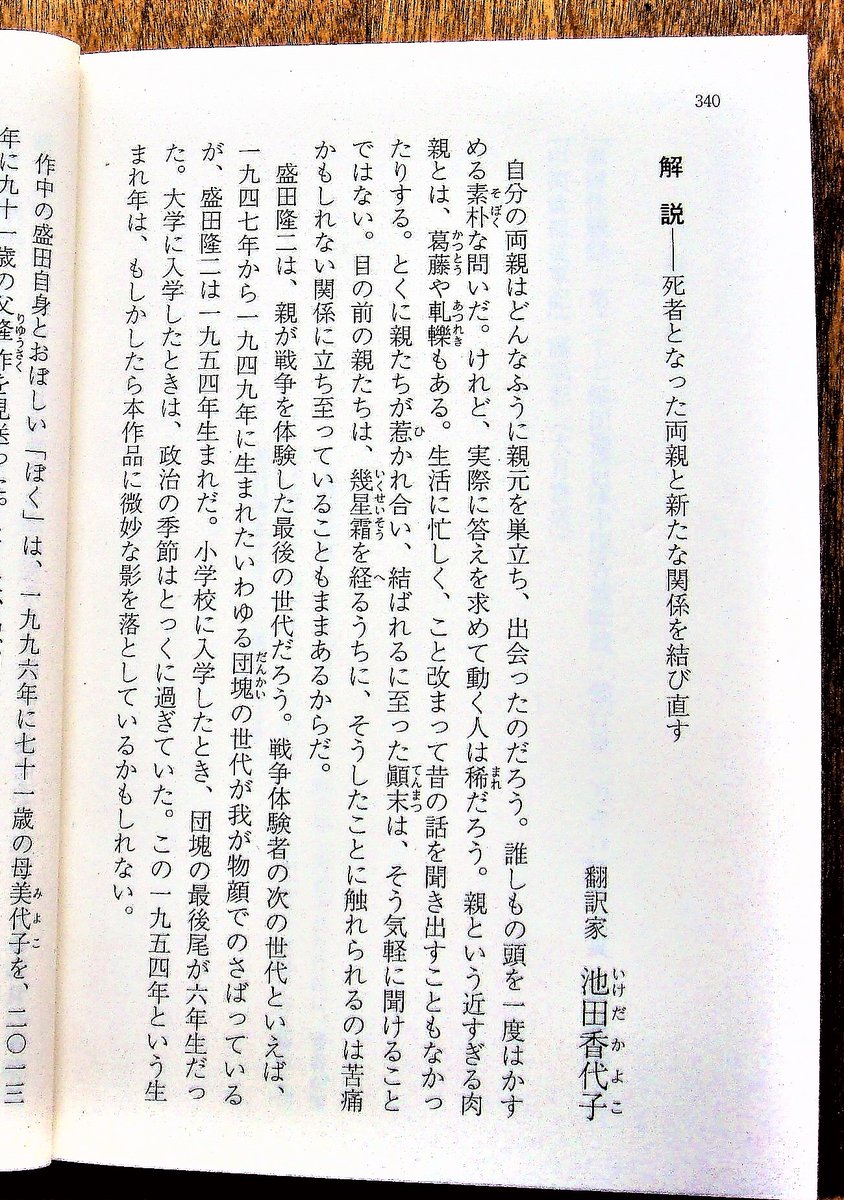 340
解説──死者となった両親と新たな関係を結び直す
翻訳家 池田香代子
いけだかよこ
自分の両親はどんなふうに親元を巣立ち、出会ったのだろう。誰しもの頭を一度はかす
める素朴な問いだ。けれど、実際に答えを求めて動く人は稀だろう。親という近すぎる肉
そぼく
まれ
親とは、葛藤や軋轢もある。生活に忙しく、こと改まって昔の話を聞き出すこともなかっ
かつとう
あつれき
たりする。とくに親たちが惹かれ合い、結ばれるに至った顚末は、そう気軽に聞けること
ひ
てんまつ
ではない。目の前の親たちは、幾星霜を経るうちに、そうしたことに触れられるのは苦痛
いくせいそう
へ
かもしれない関係に立ち至っていることもままあるからだ。
盛田隆二は、親が戦争を体験した最後の世代だろう。戦争体験者の次の世代といえば、
一九四七年から一九四九年に生まれたいわゆる団塊の世代が我が物顔でのさばっている
だんかい
が、盛田隆二は一九五四年生まれだ。小学校に入学したとき、団塊の最後尾が六年生だっ
た。大学に入学したときは、政治の季節はとっくに過ぎていた。この一九五四年という生
まれ年は、もしかしたら本作品に微妙な影を落としているかもしれない。
作中の盛田自身とおぼしい「ぼく」は、一九九六年に七十一歳の母美代子を、二〇一三
みよこ
年に九十一歳の父隆作を見送った。
りゅうさく